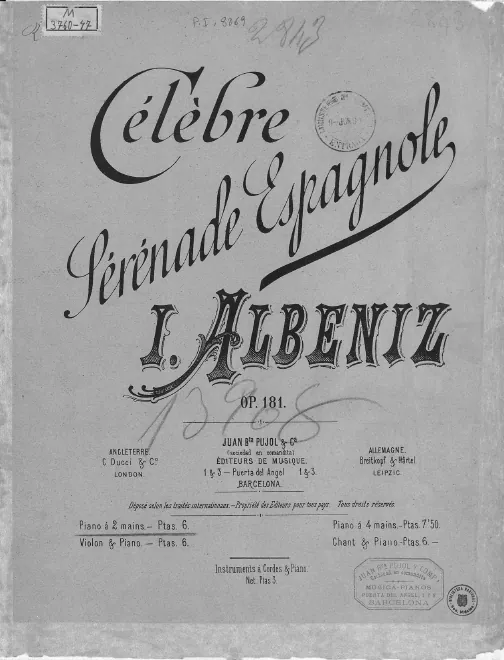 M
3760-47
P.I. 9869
2843
Célèbre
Sérénade Espagnole
I. ALBENIZ
OP. 181.
13908
ANGLETERRE.
C. Ducci & Co.
LONDON.
JUAN Bta PUJOL & Co.
(sociedad en comandita)
ÉDITEURS DE MUSIQUE.
1 & 3 – Puerta del Angel 1 & 3.
BARCELONA.
ALLEMAGNE.
Breitkopf & Härtel
LEIPZIC.
Déposé selon les traités internationaux. – Propriété des Editeurs pour tous pays Tous droits réservés.
Piano à 2 mains. – Ptas. 6.
Piano à 4 mains. – Ptas. 7'50.
Violon & Piano. – Ptas. 6.
Chant & Piano. – Ptas. 6. –
Instruments à Cordes & Piano.
Net. Ptas 3.
JUAN Bta PUJOL Y COMPa
MUSICA-PIANOS
PUERTA DEL ANGEL, 1 Y 3
BARCELONA